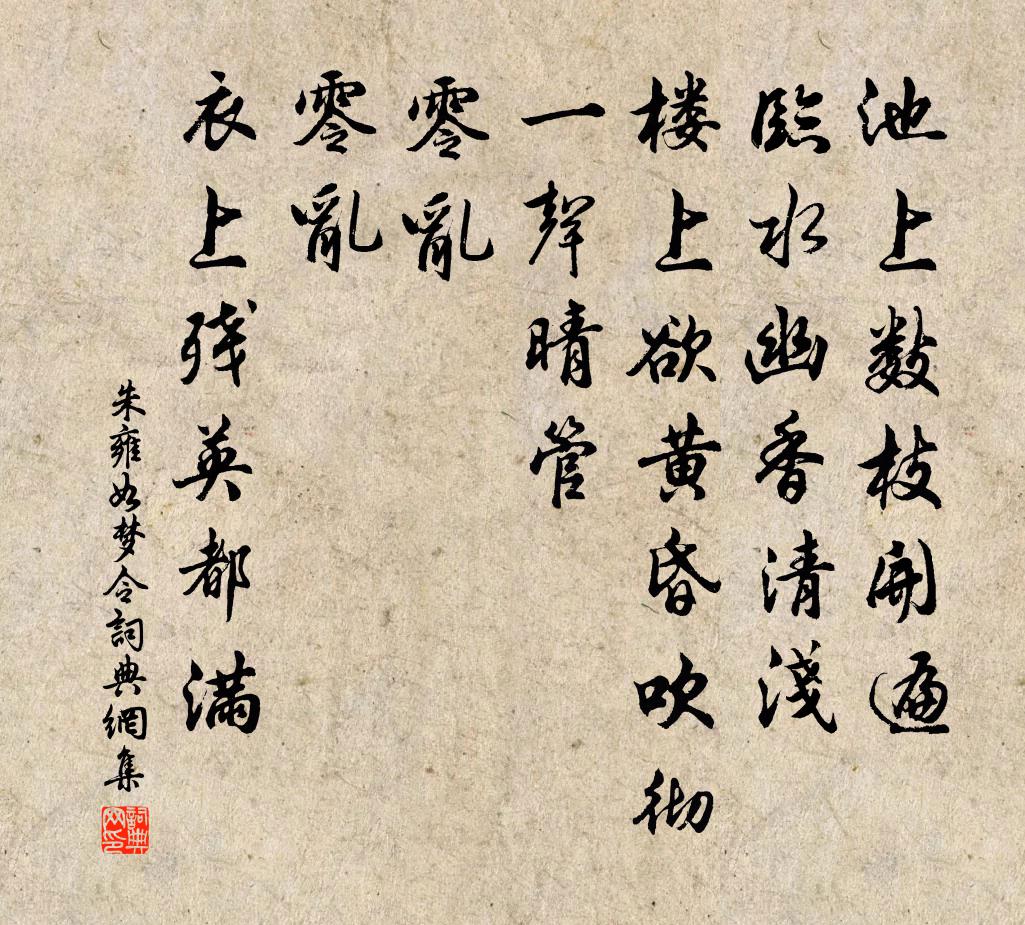 池上数枝開遍
臨水幽香清淺
楼上欲黄昏吹彻
一聲晴管
零亂
零亂
衣上残英都滿
朱雍如梦令詞典網集
詞典网印